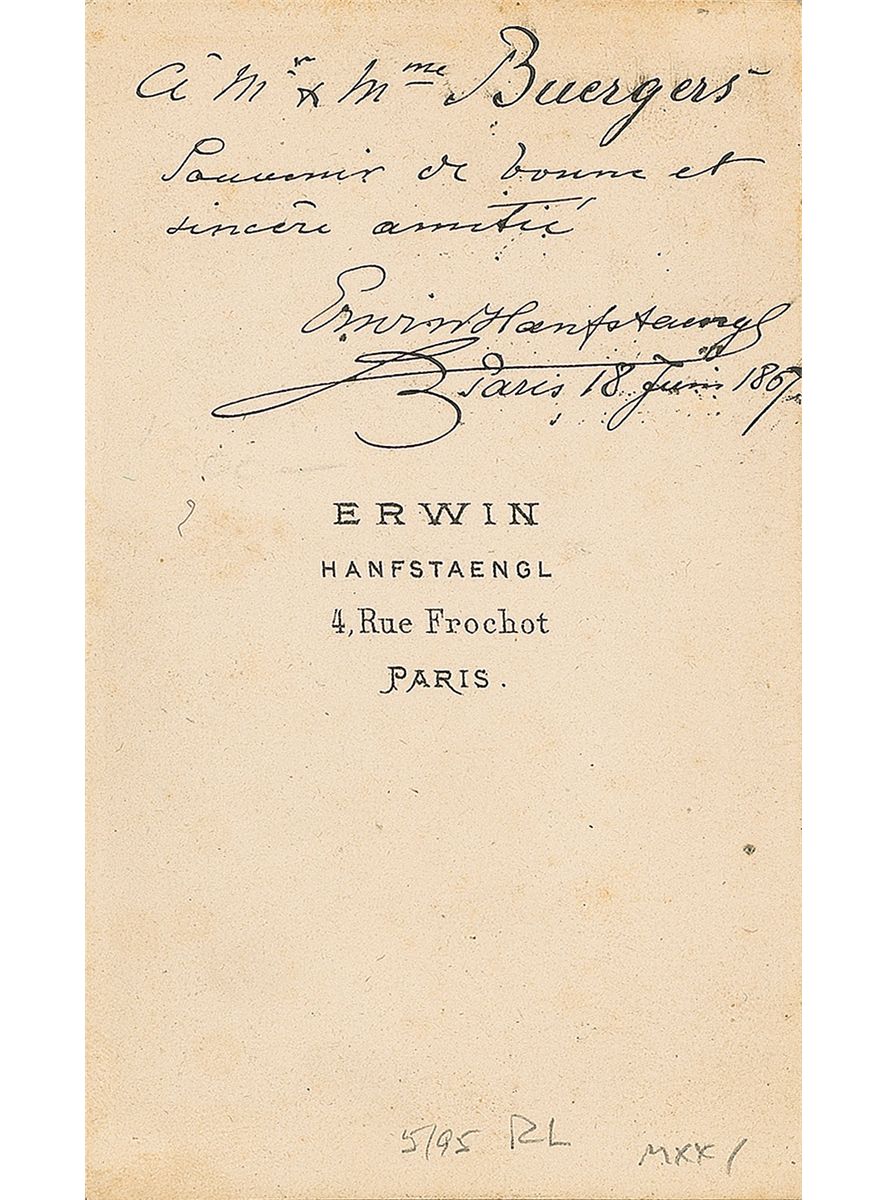 à Mr & Mme Buergers
Souvenir de bonne et
sincère amitié
Erwin Hanfstaengl
Paris 18 Juin 1867
ERWIN
HANFSTAENGL
4, Rue Frochot
PARIS.
5/95 RL
MXX/